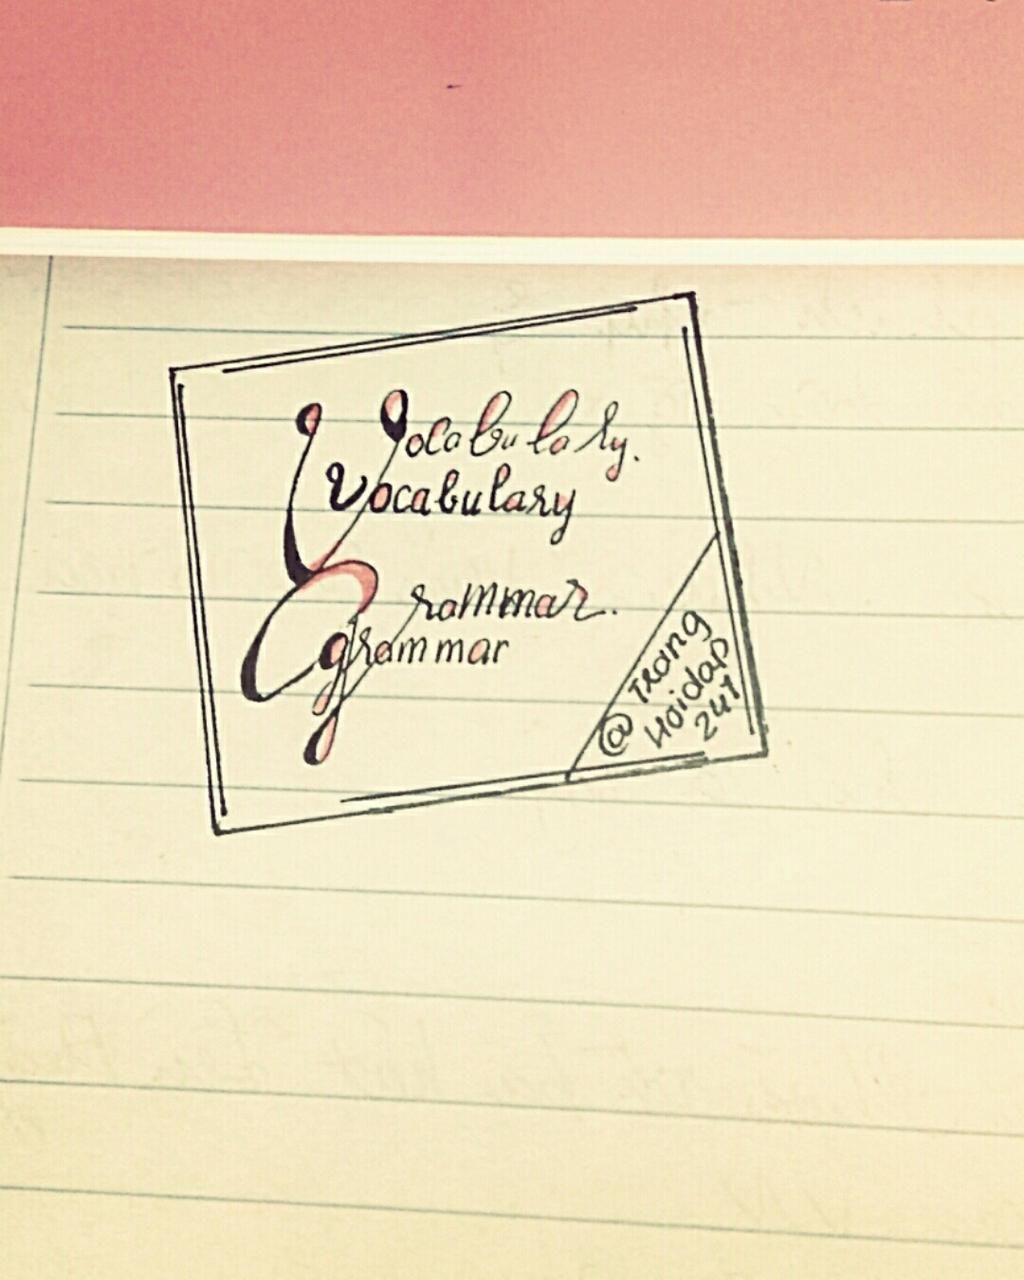 Vocabulary.
vocabulary
Grammar.
grammar
@ Trang
Hoidap
247